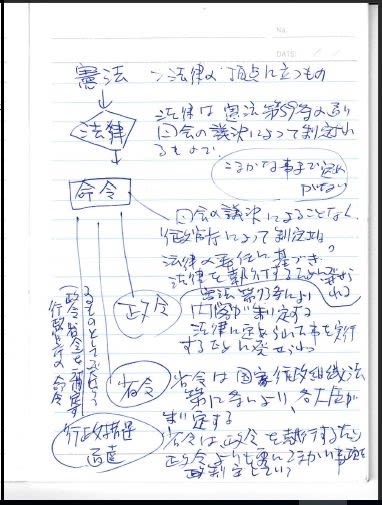 No.
DATE
憲法 → 法律の頂点に立つもの
法律
法律は憲法第59条の通り
国会の議決によって制定され
るもので
こまかな事まで定め
がない
命令
国会の議決によることなく、
行政庁によって制定され
法律の委任に基づき
法律を執行するために発せられる
政令
憲法第73条により
内閣が制定する
法律に定められた事を実行
するために発せられ
省令
省令は国家行政組織法
第12条により、各大臣が
制定する
行政措置
通達
省令は政令を執行するため
政令よりも更にこまかい事項を
るものとして
政令省令を補足す
行政上の命令